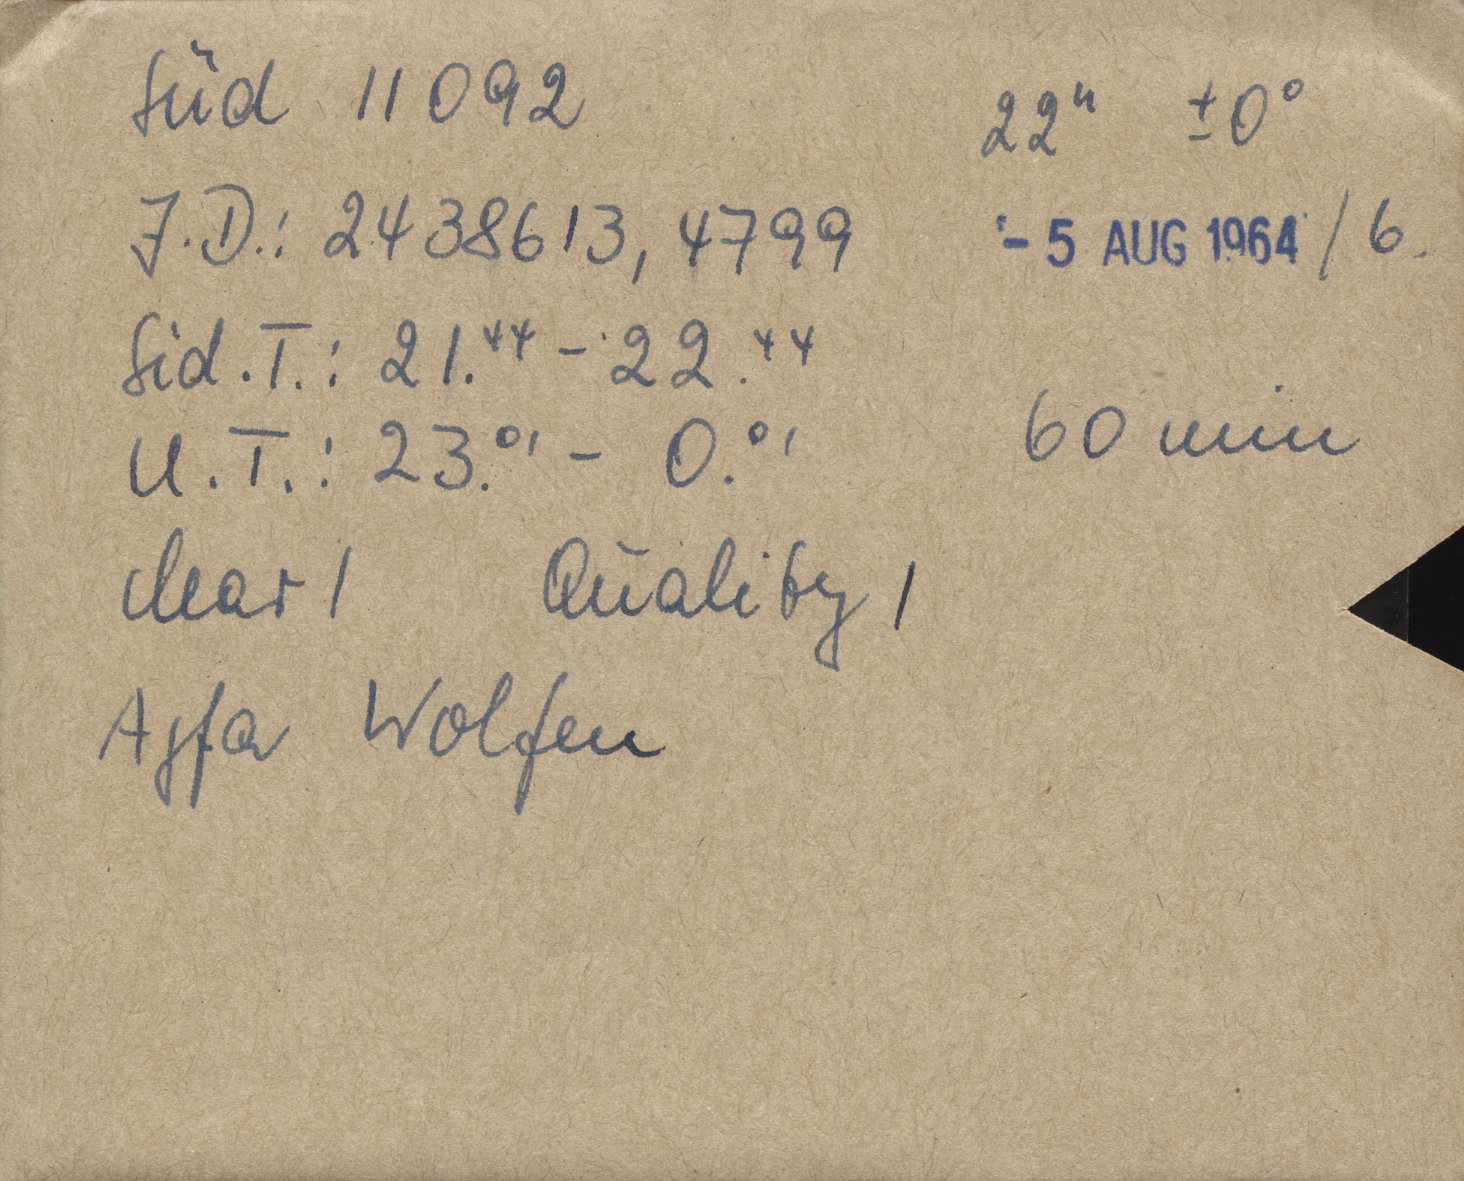 Süd 11092 22ʰ ±0°
J.D.: 2438613,4799 - 5 AUG 1964 / 6.
Sid.T.: 21.⁴⁴ - 22.⁴⁴
U.T.: 23.⁰¹ - 0.⁰¹ 60 min
clear 1 Quality 1
Agfa Wolfen